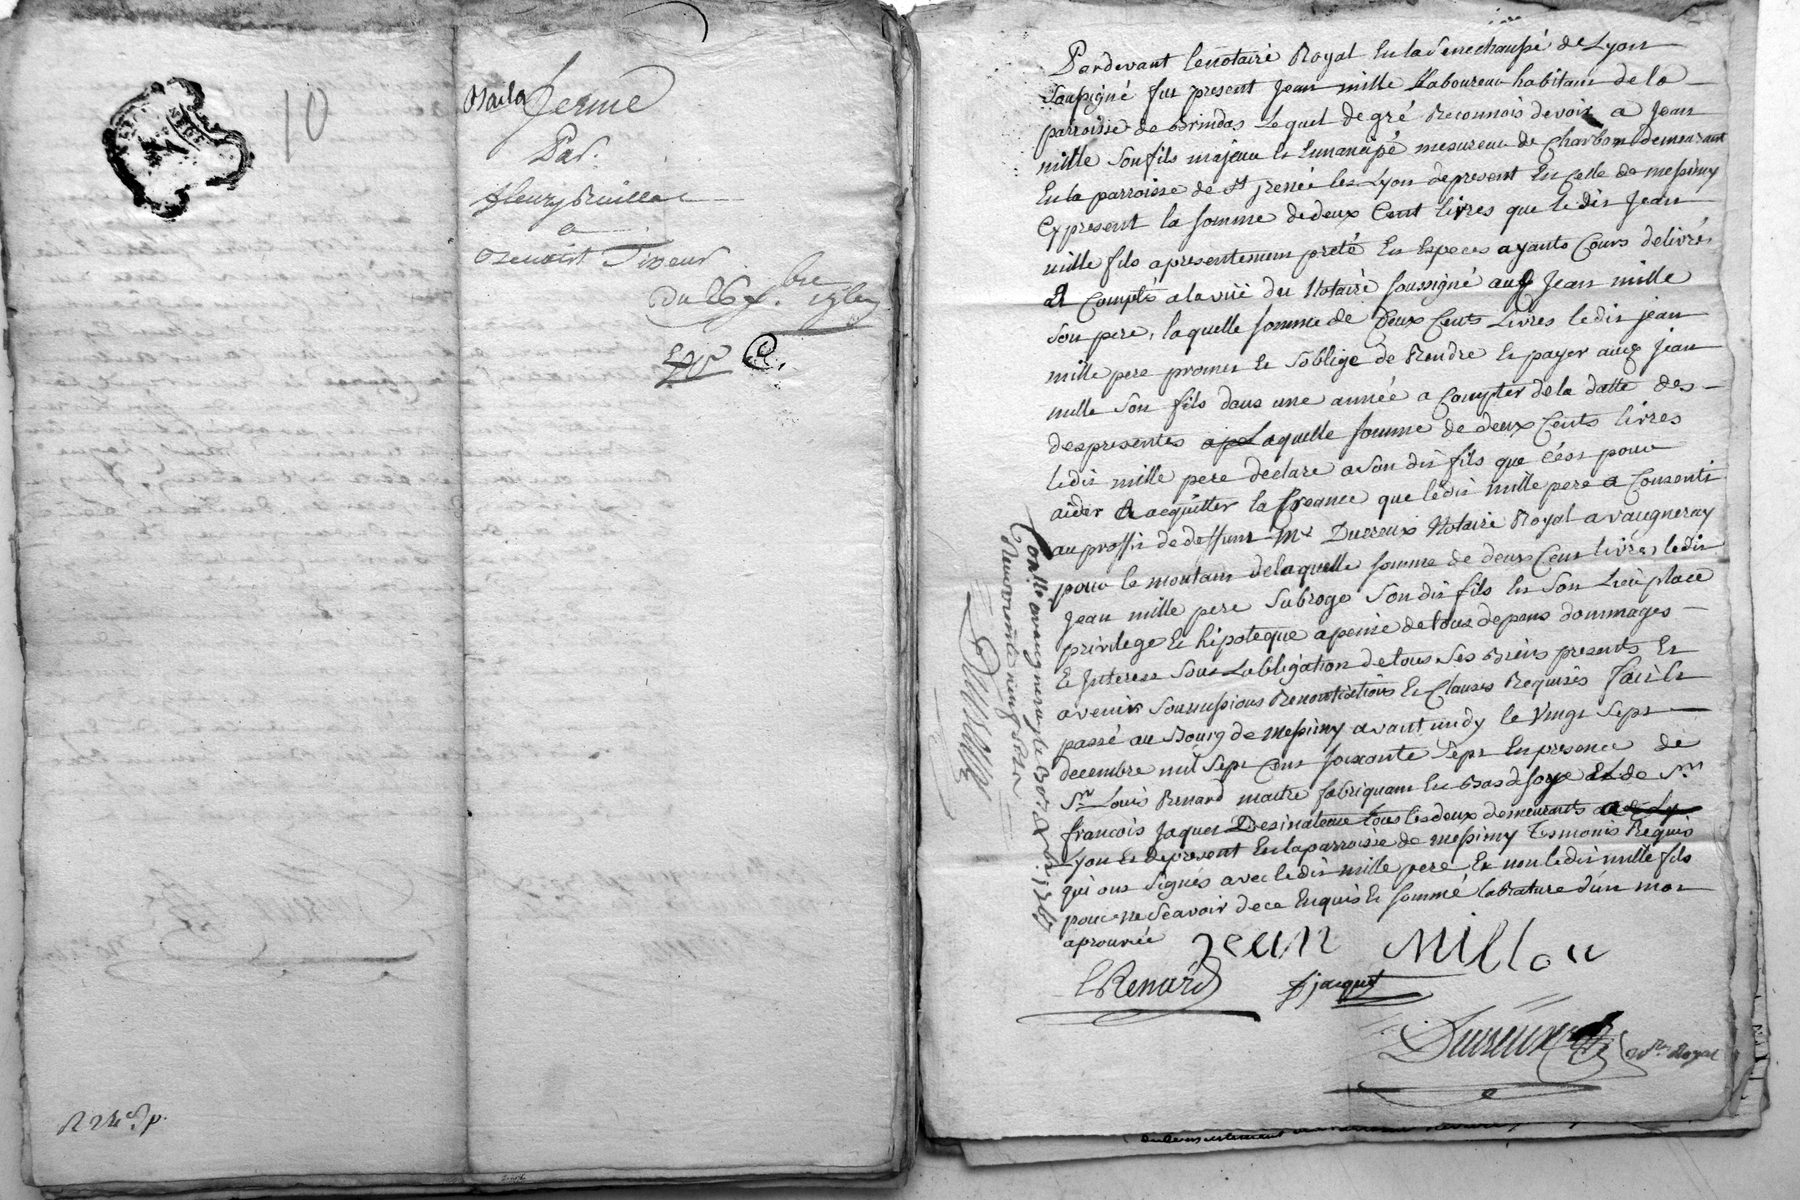 10
ferme
Par.
fleury
a
Benoist
Du 26 Xbre
Pardevant le notaire Royal En la Senechaussé de Lyon
Soussigné fut present Jean mille Laboureur habitant de la
parroisse de Brindas Lequel de gré Reconnois devoir a Jean
mille Son fils majeur et Emancipé mesureur de Charbon demeurant
En la parroisse de St jrenée les Lyon de present En celle de messimy
Cy present la somme de deux Cent livres que ledit Jean
mille fils a presentement preté En Especes ayants Cours delivrés
& Comptés a la vüe du Notaire soussigné aud Jean mille
Son pere, laquelle somme de Deux Cents Livres ledit jean
mille pere promet et s'oblige de Rendre et payer aud Jean
mille Son fils dans une année a Compter de la datte des
des presentes laquelle somme de deux Cents livres
ledit mille pere declare a Son dit fils que c'est pour
aider & acquitter la Creance que ledit mille pere a Consenti
au proffit de deffunt Me Ducreux Notaire Royal a vaugneray
pour le montant de laquelle somme de deux Cent livres ledit
Jean mille pere Subroge Son dit fils En Son Lieu place
privilege et hipoteque a peine de tous depens dommages
et Interest Sous L'obligation de tous Ses Biens presents et
avenir Soumissions Renontiations et Clauses Requises fait et
passé au Bourg de messimy avant midy le vingt Sept
decembre mil Sept Cent soixante Sept En presence de
Sr Louis Renard maitre fabriquant En Bas de soye et de Sr
francois Jaquet Desinateur tous les deux demeurants a
Lyon et de present En la parroisse de messimy Temoins Requis
qui ont Signés avec ledit mille pere et non ledit mille fils
pour ne Scavoir de ce Enquis et sommé la Rature d'un mot
aprouvée
Jean Millou
L Renard
fjaquet
Ducreux
Nre Royal
Conlle a vaugneray le 30 Xbre 1767
Ducreux
R 24 s p.